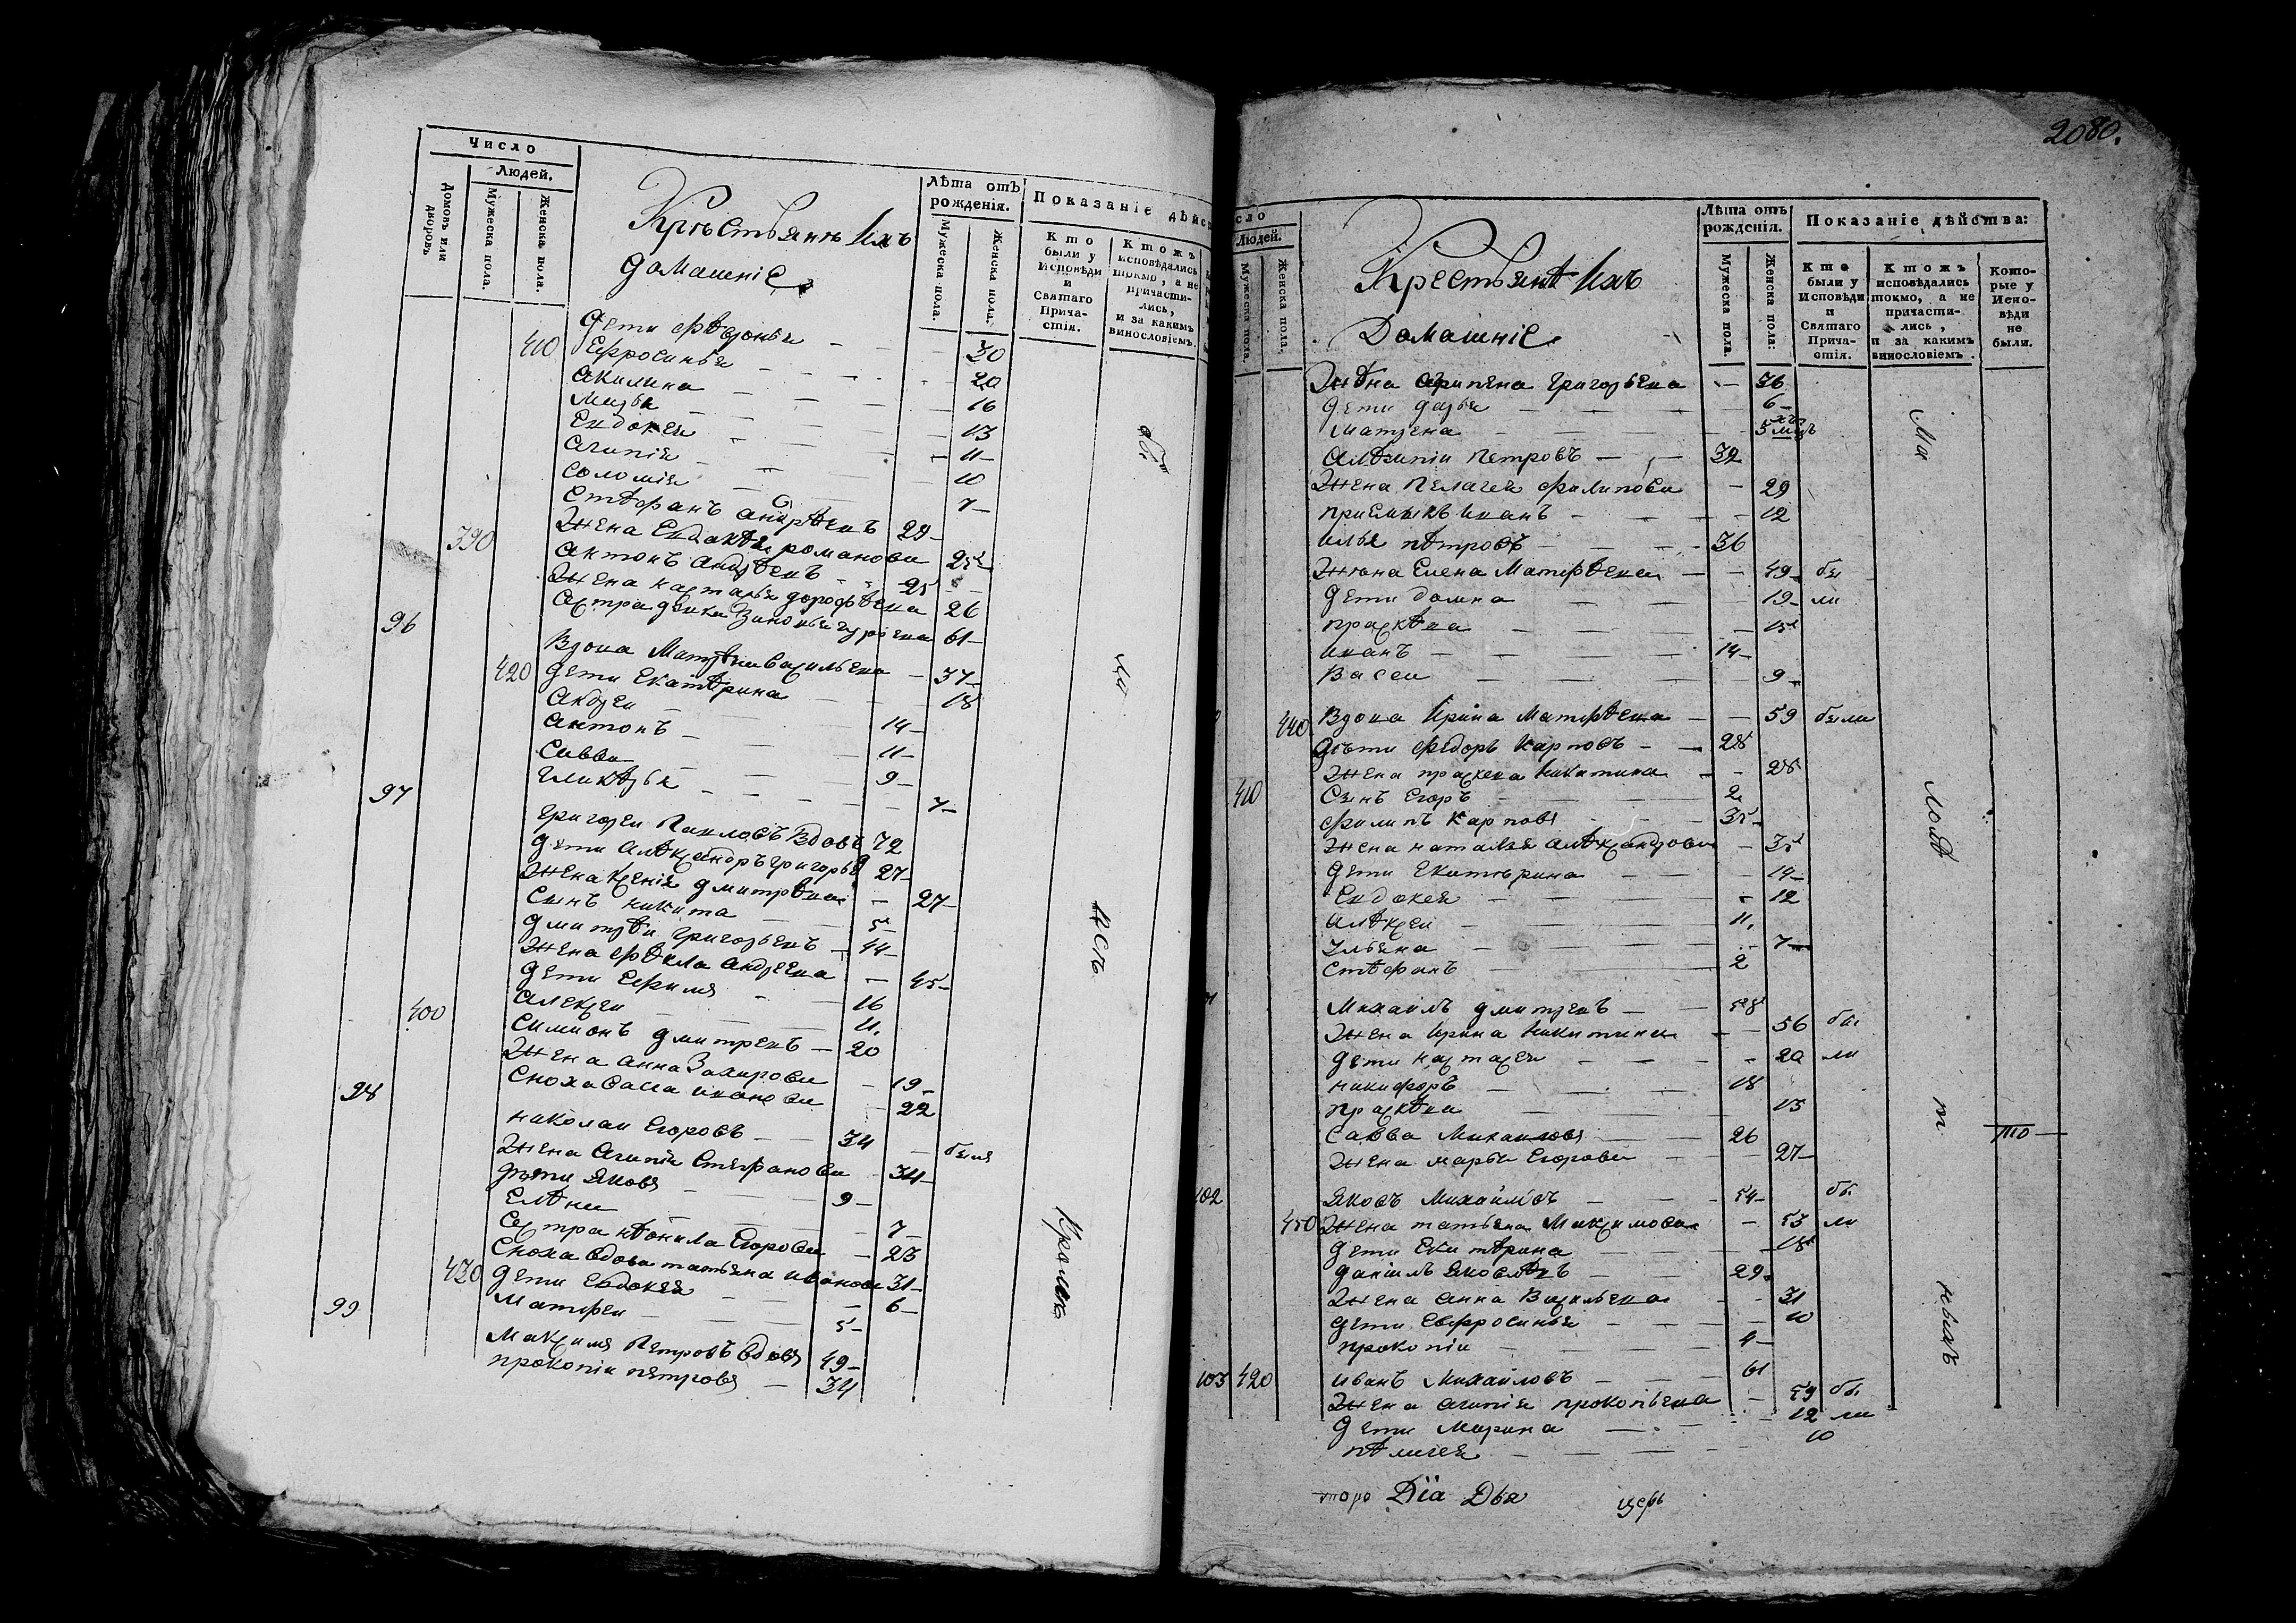 Число
Людей.
Домовъ или дворовъ
Мужеска пола.
Женска пола.
Крестьяне Ихъ
домашніе
Лѣта отъ рожденія.
Мужеска пола.
Женска пола.
Показаніе дѣйс
Кто были у Исповѣди и Святаго Причастія.
Ктожъ исповѣдались токмо, а не причастились, и за какимъ винословіемъ.
410 дети Федосья — 30
Ефросинья — 20
Акилина — 16
Марья — 13
Евдокея — 11
Агапія — 10
Соломія — 7
Стефанъ Андреевъ 29
390 Жена Евдокея романова 25
Антонъ Андреевъ 25
Жена настасья дорофеева 26
96 61
Вдова Матрена Васильева — 37
420 дети Екатерина — 18
Андреи — 14
Антонъ — 11
Савва — 9
Гликерья — 7
97 Григореи Павловъ вдовъ 72
дети Александръ григорьевъ 27
Жена Ксенія дмитрева — 27
Сынъ никита — 5
дмитреи григорьевъ — 44
Жена Фекла Андреева — 45
дети Ефимъ — 16
400 Алексеи — 11
Симионъ дмитревъ — 20
Жена Анна Захарова — 19
Сноха иванова — 22
98 николаи Егоровъ — 34 были
Жена Агапія Стефанова — 34
дети Яковъ — 9
Елена — 7
Сестра неонила Егорова — 23
Сноха вдова татьяна иванова 31
430 дети Евдокея — 6
Матфеи — 5
99 Максимъ Петровъ вдовъ 49
прокопіи петровъ — 34
2080.
сло
Людей.
Мужеска пола.
Женска пола.
Крестьяне Ихъ
Домашніе
Лѣта отъ рожденія.
Мужеска пола.
Женска пола:
Показаніе дѣйства:
Кто были у Исповѣди и Святаго Причастія.
Ктожъ исповѣдались токмо, а не причастились, и за какимъ винословіемъ.
Которые у Исповѣди не были.
Жена Агрипена григорьева — 36
дети дарья — 6
Матрена — 5
петровъ — 32
Жена Пелагея филипова — 29
приемышъ иванъ — 12
илья петровъ — 36
Жена Елена Матфеева — 49 бы
дети домна — 19 ли
праскева — 15
иванъ — 14
Васса — 9
440 Вдова Ирина Матфеева — 59 были
дети Федоръ Карповъ — 28
Жена праскева никитина — 28
410 Сынъ Егоръ — 2
филипъ Карповъ — 35
Жена наталья александрова — 35
дети Екатерина — 19
Евдокея — 12
Алексеи — 11
ульяна — 7
стефанъ — 2
Михаилъ дмитревъ — 58
Жена Ирина никитина — 56 бы
дети настасея — 20 ли
никифоръ — 18
праскева — 15
Савва Михаиловъ — 26
Жена марья Егорова — 27
102 Яковъ Михаиловъ — 54 бы
450 Жена татьяна Максимова — 53 ли
дети Екатерина — 18
даніилъ Яковлевъ — 29
Жена анна Васильева — 31
дети Ефросинья — 10
прокопіи — 4
103 420 иванъ Михаиловъ — 61
Жена агапія прокопьева — 59 бы
дети Марина — 12 ли
пелагея — 10